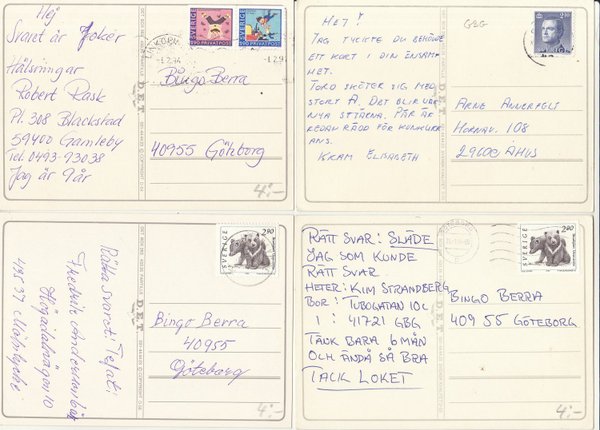 Hej
Svaret är Joker
Hälsningar
Robert Rask
Pl. 308 Blackstad
59400 Gamleby
Tel. 0493-93038
Jag är 9år
SVERIGE
2.90 PRIVATPOST
SVERIGE
2.90 PRIVATPOST
Bingo Berra
40955 Göteborg
DET
4:-
HEJ!
GBG
JAG TYCKTE DU BEHÖVDE
ETT KORT I DIN ENSAM-
HET.
TOKO SKÖTER SIG MED
STORT A. DET BLIR VÅR
NYA STJÄRNA. PÄR ÄR
REDAN RÄDD FÖR KONKURR
ANS.
KRAM ELISABETH
2.80
ARNE
HORNAV. 108
29600 ÅHUS
DET
Rätta svaret: Tefat:
Högadalsvägen 10
SVERIGE
2.90
Bingo Berra
40955
Göteborg
DET
4:-
RÄTT SVAR: SLÄDE
JAG SOM KUNDE
RÄTT SVAR
HETER: KIM STRANDBERG
BOR: TUBOGATAN 10C
41721 GBG
TÄNK BARA 6 MÅN
OCH ÄNDÅ SÅ BRA
TACK LOKET
SVERIGE
2.90
BINGO BERRA
409 55 GÖTEBORG
DET
4:-